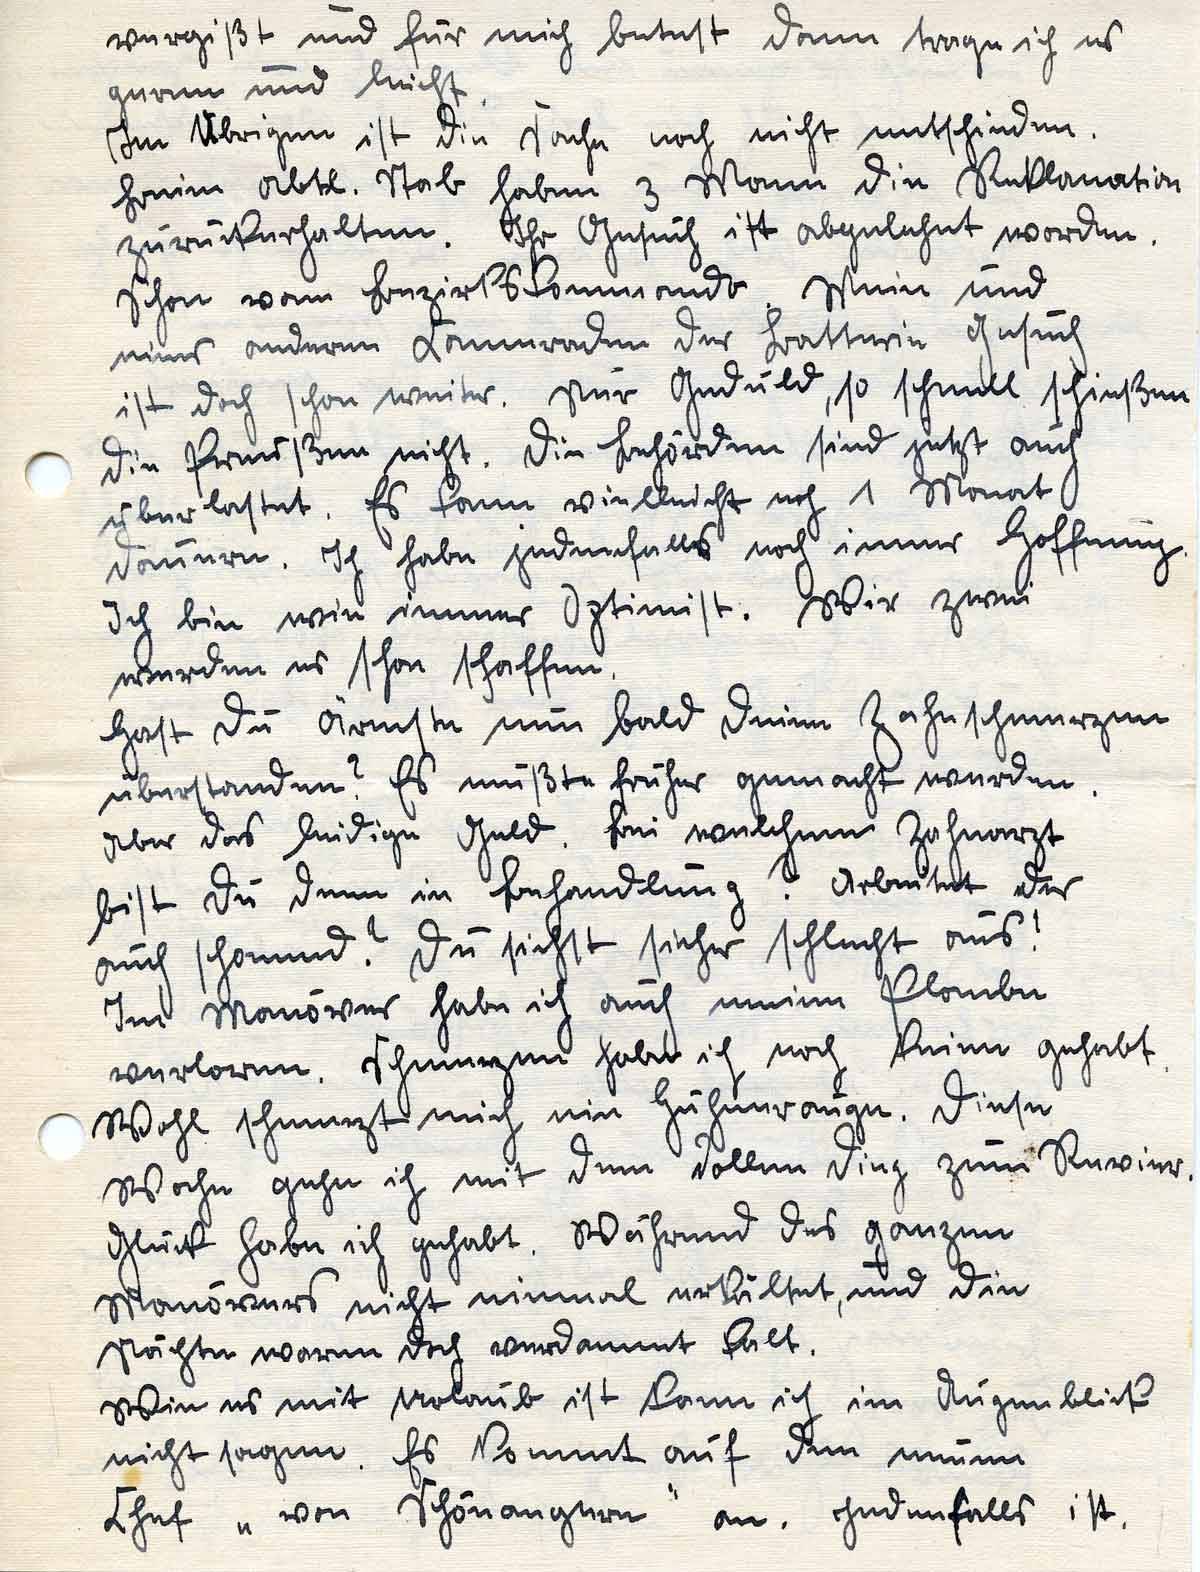 vergißt und für mich betest dann trage ich es
gerne und leicht.
Im Übrigen ist die Sache noch nicht entschieden.
Beim Abtl. Stab haben 3 Mann die Reklamation
zurückerhalten. Ihr Gesuch ist abgelehnt worden.
Schon vom Bezirkskommando. Mein und
eines anderen Kameraden der Batterie Gesuch
ist doch schon weiter. Nur Geduld, so schnell schießen
die Preußen nicht. Die Behörden sind jetzt auch
überlastet. Es kann vielleicht noch 1 Monat
dauern. Ich habe jedenfalls noch immer Hoffnung.
Ich bin wie immer Optimist. Wir zwei
werden es schon schaffen.
Hast Du Ärmste nun bald Deine Zahnschmerzen
überstanden? Es müßte früher gemacht werden.
Aber das leidige Geld. Bei welchem Zahnarzt
bist Du denn in Behandlung? Arbeitet der
auch schonend? Du siehst sicher schlecht aus!
Im Manöver habe ich auch meine Plombe
verloren. Schmerzen habe ich noch keine gehabt.
Wohl schmerzt mich ein Hühnerauge. Diese
Woche gehe ich mit dem dollen Ding zum Revier.
Glück habe ich gehabt. Während des ganzen
Manövers nicht einmal erkältet, und die
Nächte waren doch verdammt kalt.
Wie es mit Urlaub ist kann ich im Augenblick
nicht sagen. Es kommt auf den neuen
Chef „von Schönangern" an. Jedenfalls ist.